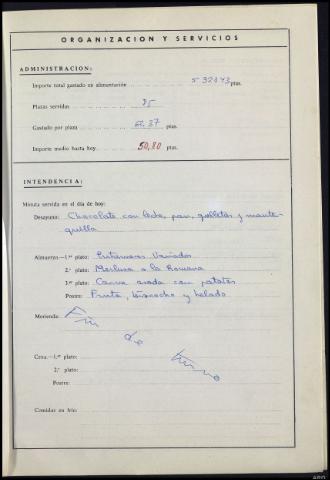 ORGANIZACION Y SERVICIOS
ADMINISTRACION:
Importe total gastado en alimentación ptas.
Plazas servidas 85
Gastado por plaza 62,37 ptas.
Importe medio hasta hoy 50,80 ptas.
INTENDENCIA:
Minuta servida en el día de hoy:
Desayuno: Chocolate con leche, pan, galletas y mante-
quilla
Almuerzo.—1.er plato: Entremeses Variados
2.º plato: Merluza a la Romana
3.er plato: Carne asada con patatas
Postre: Fruta, bizcocho y helado
Merienda: Fin
de
turno
Cena.—1.er plato:
2.º plato:
Postre:
Comidas en frío: